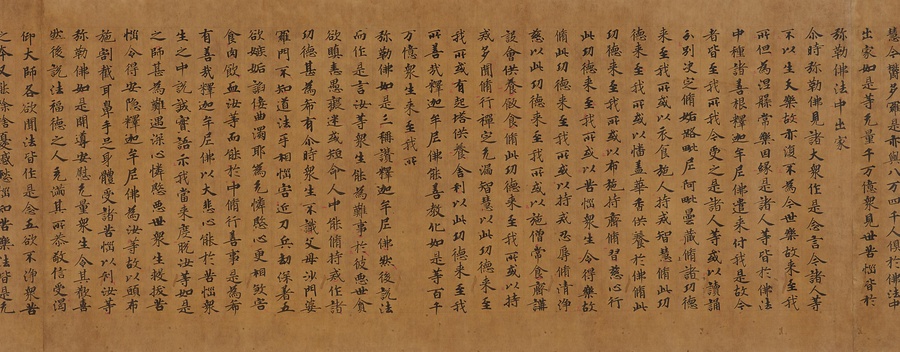 出家如是等无量千万億衆見世苦惱皆於
弥勒佛法中出家
尒時弥勒佛見諸大衆作是念言今諸人等
不以生天樂故亦復不為今世樂故来至我
所但為涅槃常樂因緣是諸人等皆於佛法
中種諸善根釋迦牟尼佛遣来付我是故今
者皆至我所我今受之是諸人等或以讀誦
分別決定脩妬路毗尼阿毗曇藏脩諸功德
来至我所或以衣食施人持戒智慧脩此功
德来至我所或以幡蓋華香供養於佛脩此
功德来至我所或以布施持齋脩習慈心行
此功德来至我所或以苦惱衆生令得樂故
脩此功德来至我所或以持戒忍辱脩清淨
慈以此功德来至我所或以施僧常食齋講
設會供養飯食脩此功德来至我所或以持
戒多聞脩行禪定无漏智慧以此功德来至
我所或有起塔供養舍利以此功德来至我
所善哉釋迦牟尼佛能善教化如是等百千
万億衆生来至我所
弥勒佛如是三稱讚釋迦牟尼佛然後說法
而作是言汝等衆生能為難事於彼惡世貪
欲瞋恚愚癡迷惑短命人中能脩持戒作諸
功德甚為希有尒時衆生不識父母沙門婆
羅門不知道法手相惱害近刀兵劫深着五
欲嫉妬諂佞曲濁耶為无憐愍心更相敦害
食肉飲血汝等而能於中脩行善事是為希
有善哉釋迦牟尼佛以大悲心能於苦惱衆
生之中說誠實語示我當来度脫汝等如是
之師甚為難遇深心憐愍惡世衆生救拔苦
惱令得安隱釋迦牟尼佛為汝等故以頭布
施割截耳鼻手足身體受諸苦惱以利汝等
弥勒佛如是開導安慰无量衆生令其歡喜
然後說法福德之人充滿其所恭敬信受渴
仰大師各欲聞法皆作是念五欲不淨衆苦
之本又能除捨憂慼愁惱知苦樂法皆是无